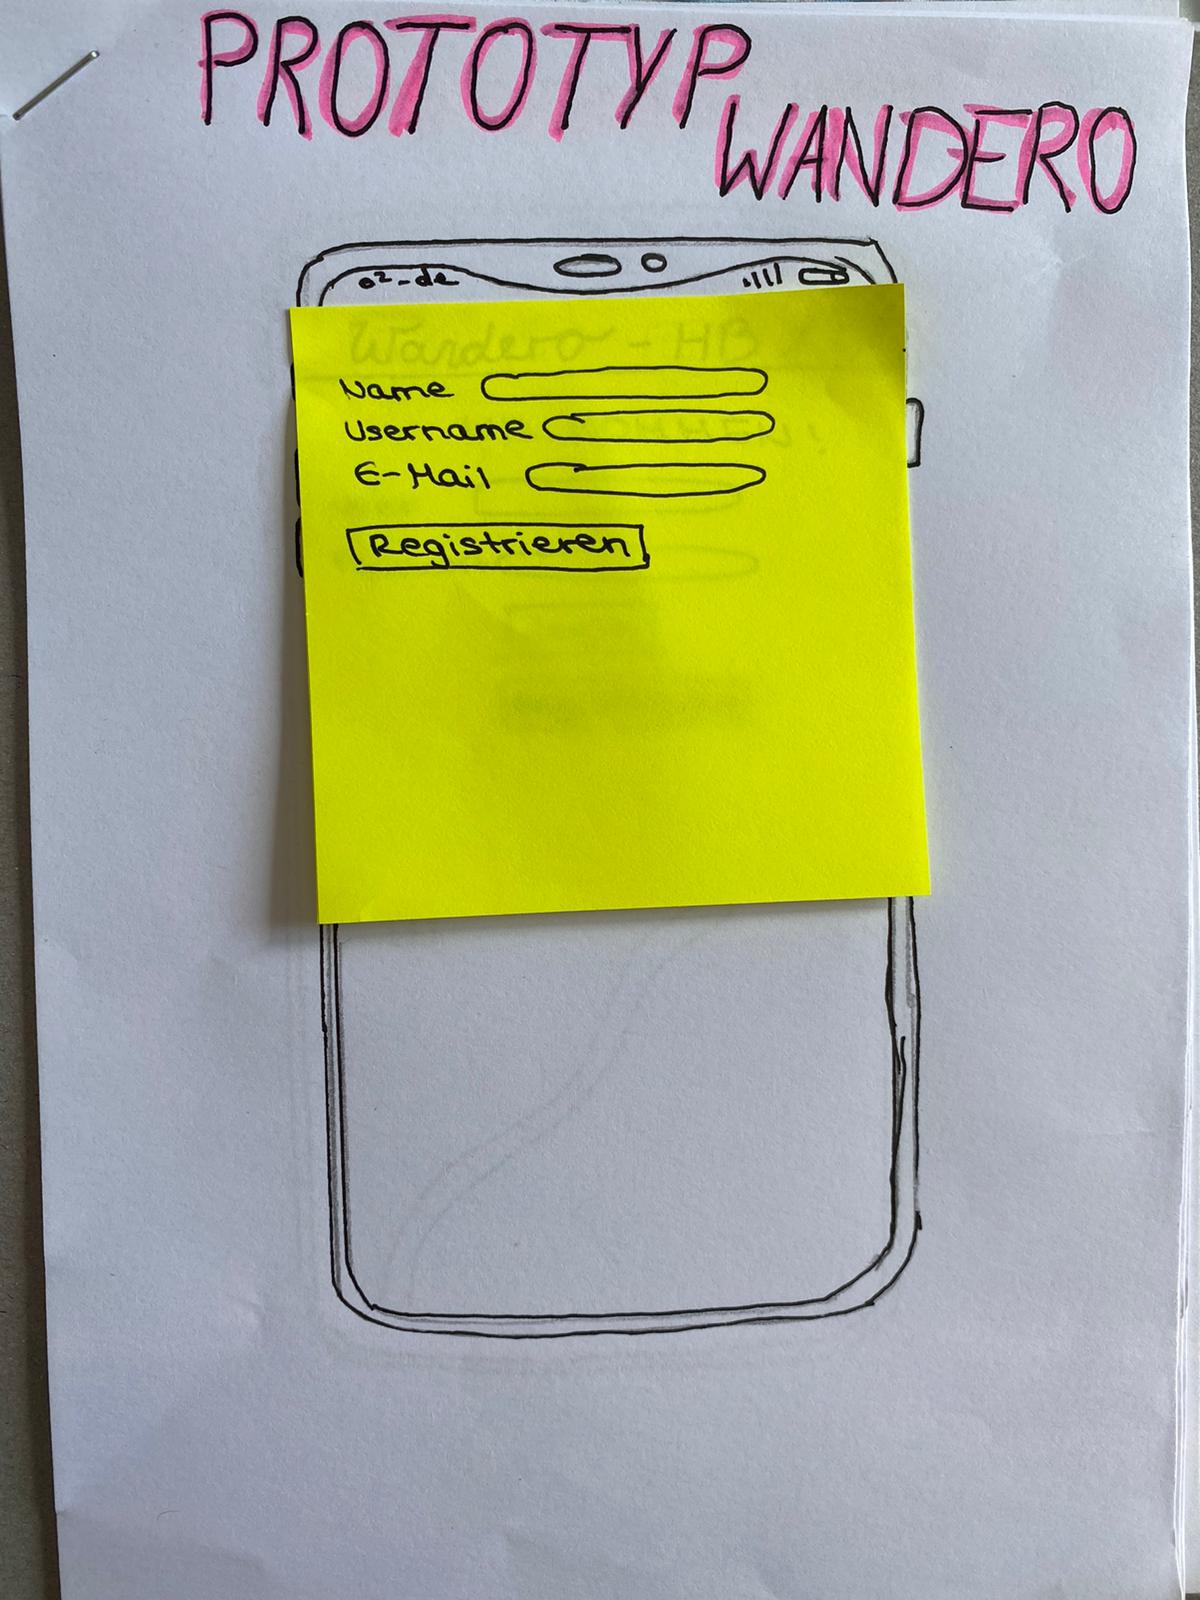 PROTOTYP
WANDERO
o2-de
Wandero - HB
Name
Username
E-Mail
Registrieren